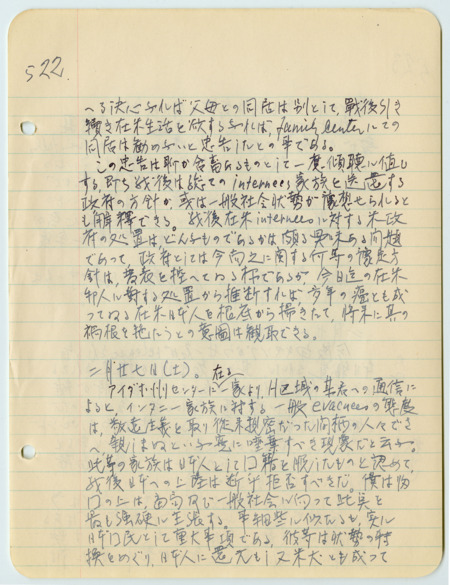 522.
へる決心ナれば父母との同居は別として、戦後引き
続き在米生活を欲するナれば、family centerにての
同居は勧めないと忠告したとの事である。
この忠告は聊か含蓄あるものとして一度傾聴に値し
する、即ち戦後は総ての internees 家族を送還する
政府の方針か、或は一般社会状勢が予想せられると
も解釋できる。戦後在米internees に対する米政
府の処置は、どんナものであるかは頗る興味ある問題
であって、政府としては今尚之に関する何等の確定方
針は、発表を控へてゐる様であるが、今日迄の在米
邦人に對する処置から推断すれば、多年の癌とも成
ってゐる在米日本人を根底から掃きたて、将来に其の
禍根を絶たうとの意図は観取できる。
二月廿七日(土)。
在る
アイダホ州センターに一家より、H区域の某君への通信に
よると、インタニー家族に対する一般evacueesの態度
は、敬遠主義を取り従来親密だった間柄の人々でさ
へ、親しまぬといふ
家族は日本人として口籍を脱したものと認めて、
戦後日本への上陸は断乎拒否すべきだ。僕は帰
口の上は、当局及び一般社会に向って此
最も強硬に主張する。
日本口民として重大事項である、彼等は状勢の転
換をめぐり、日本人に還元もし又米犬とも成って